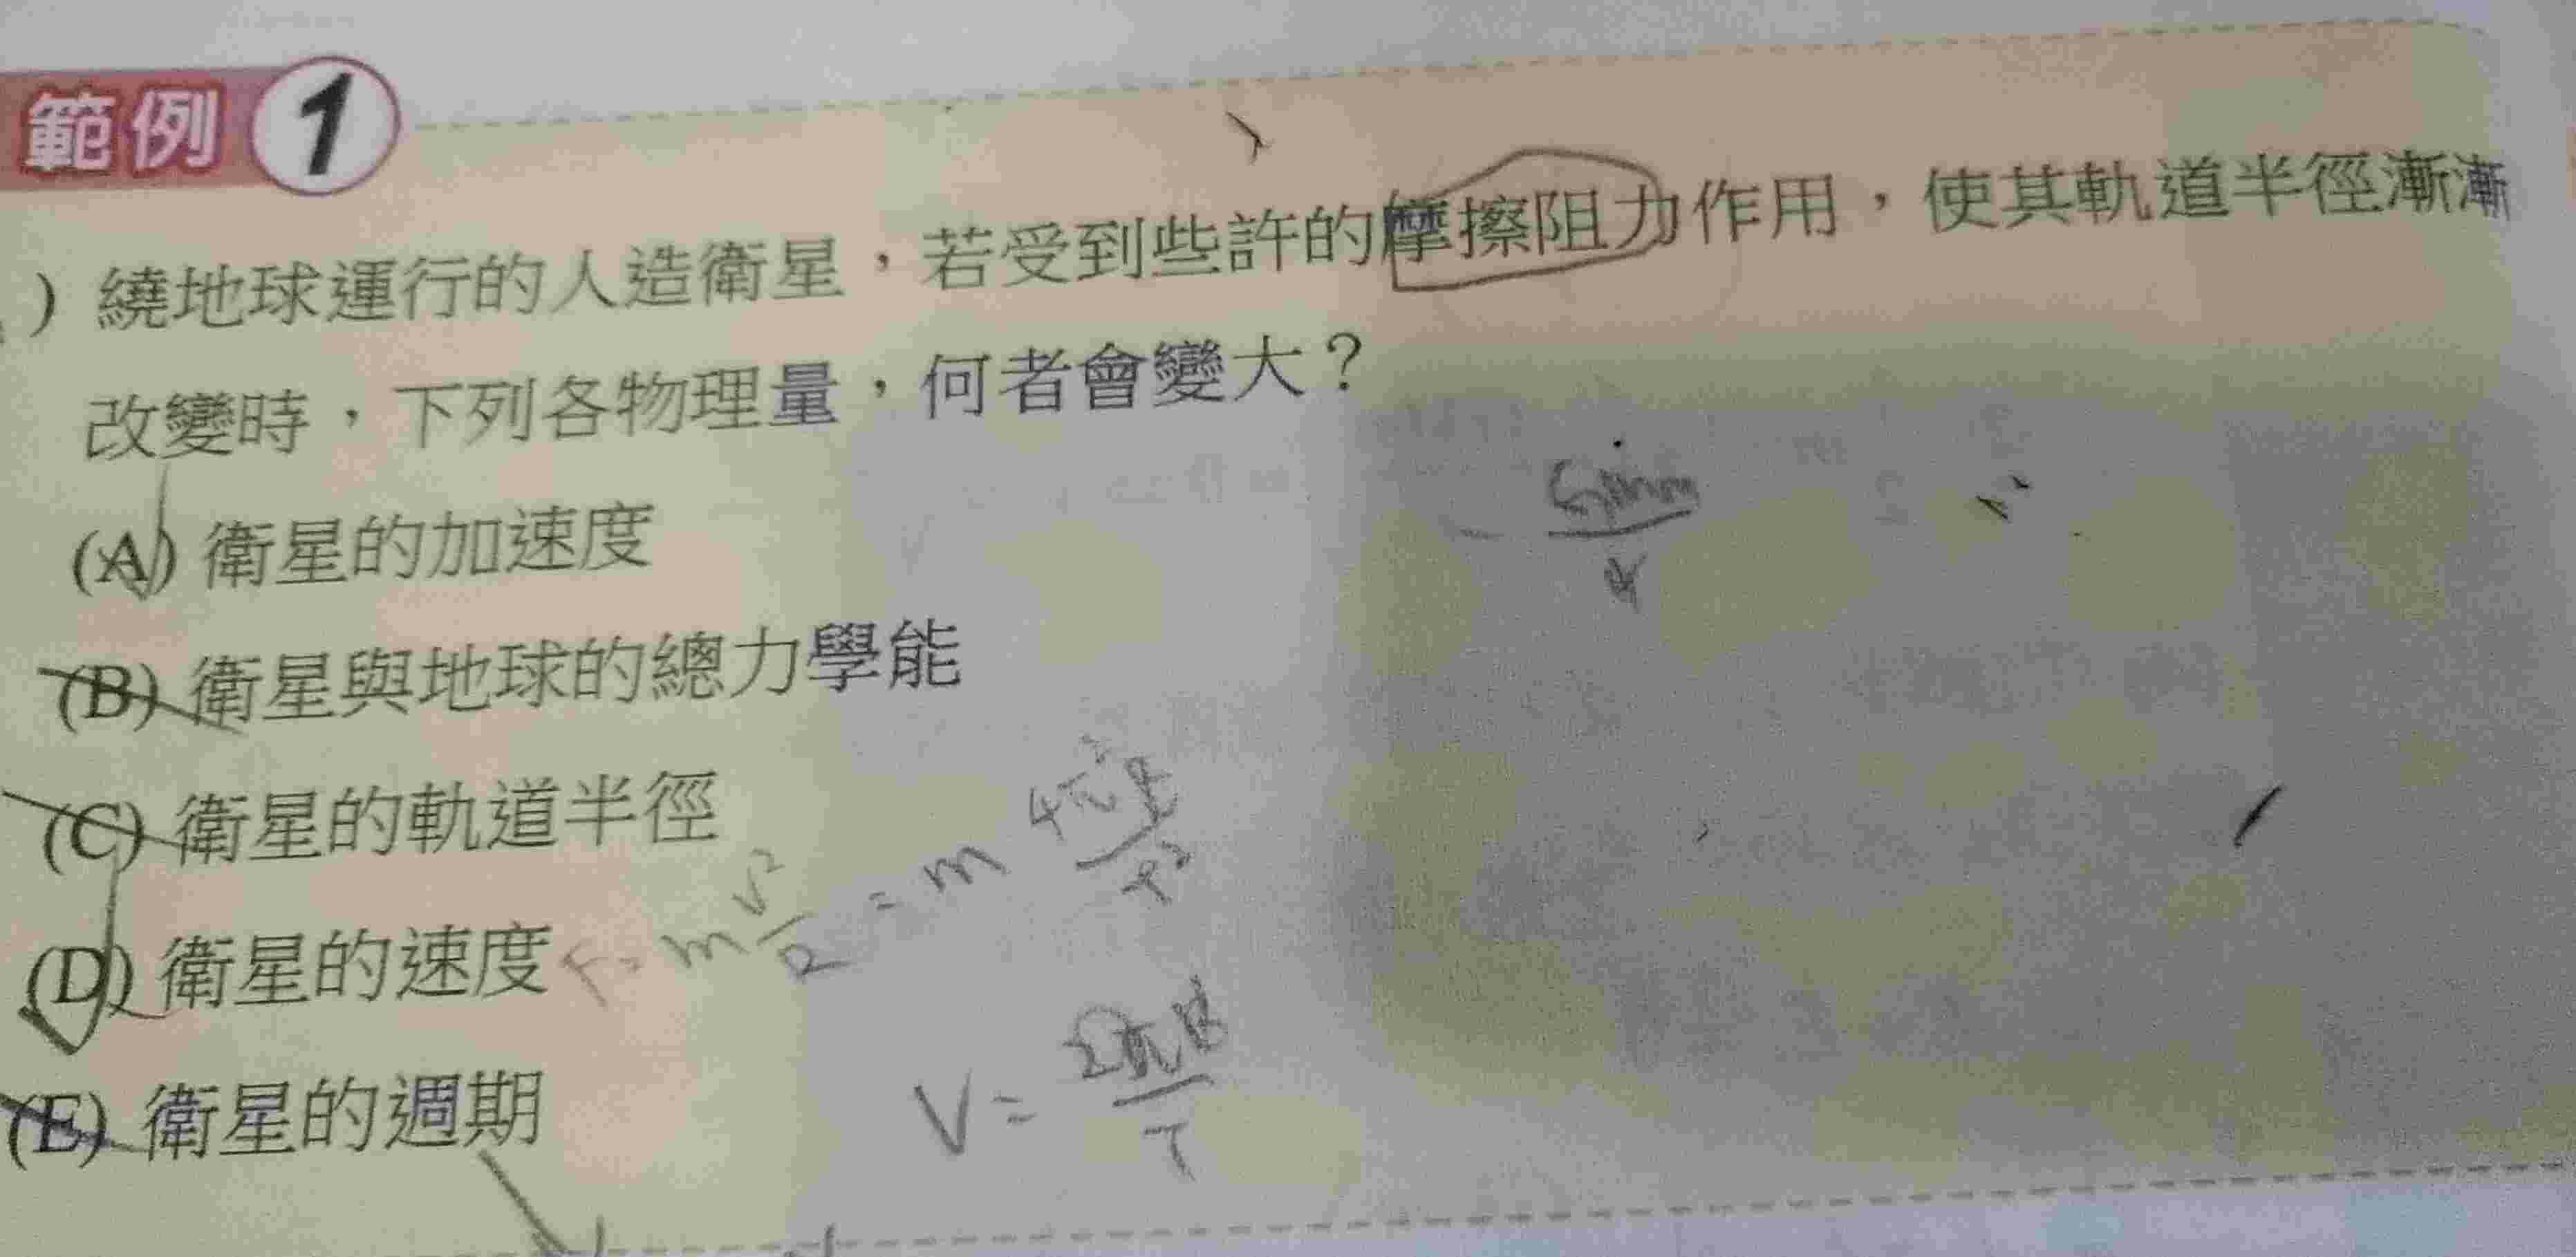 範例 1
) 繞地球運行的人造衛星，若受到些許的摩擦阻力作用，使其軌道半徑漸漸
改變時，下列各物理量，何者會變大？
(A) 衛星的加速度
(B) 衛星與地球的總力學能
(C) 衛星的軌道半徑
(D) 衛星的速度
F = m v²/R = m 4π²R/T²
(E) 衛星的週期
V = 2πR/T